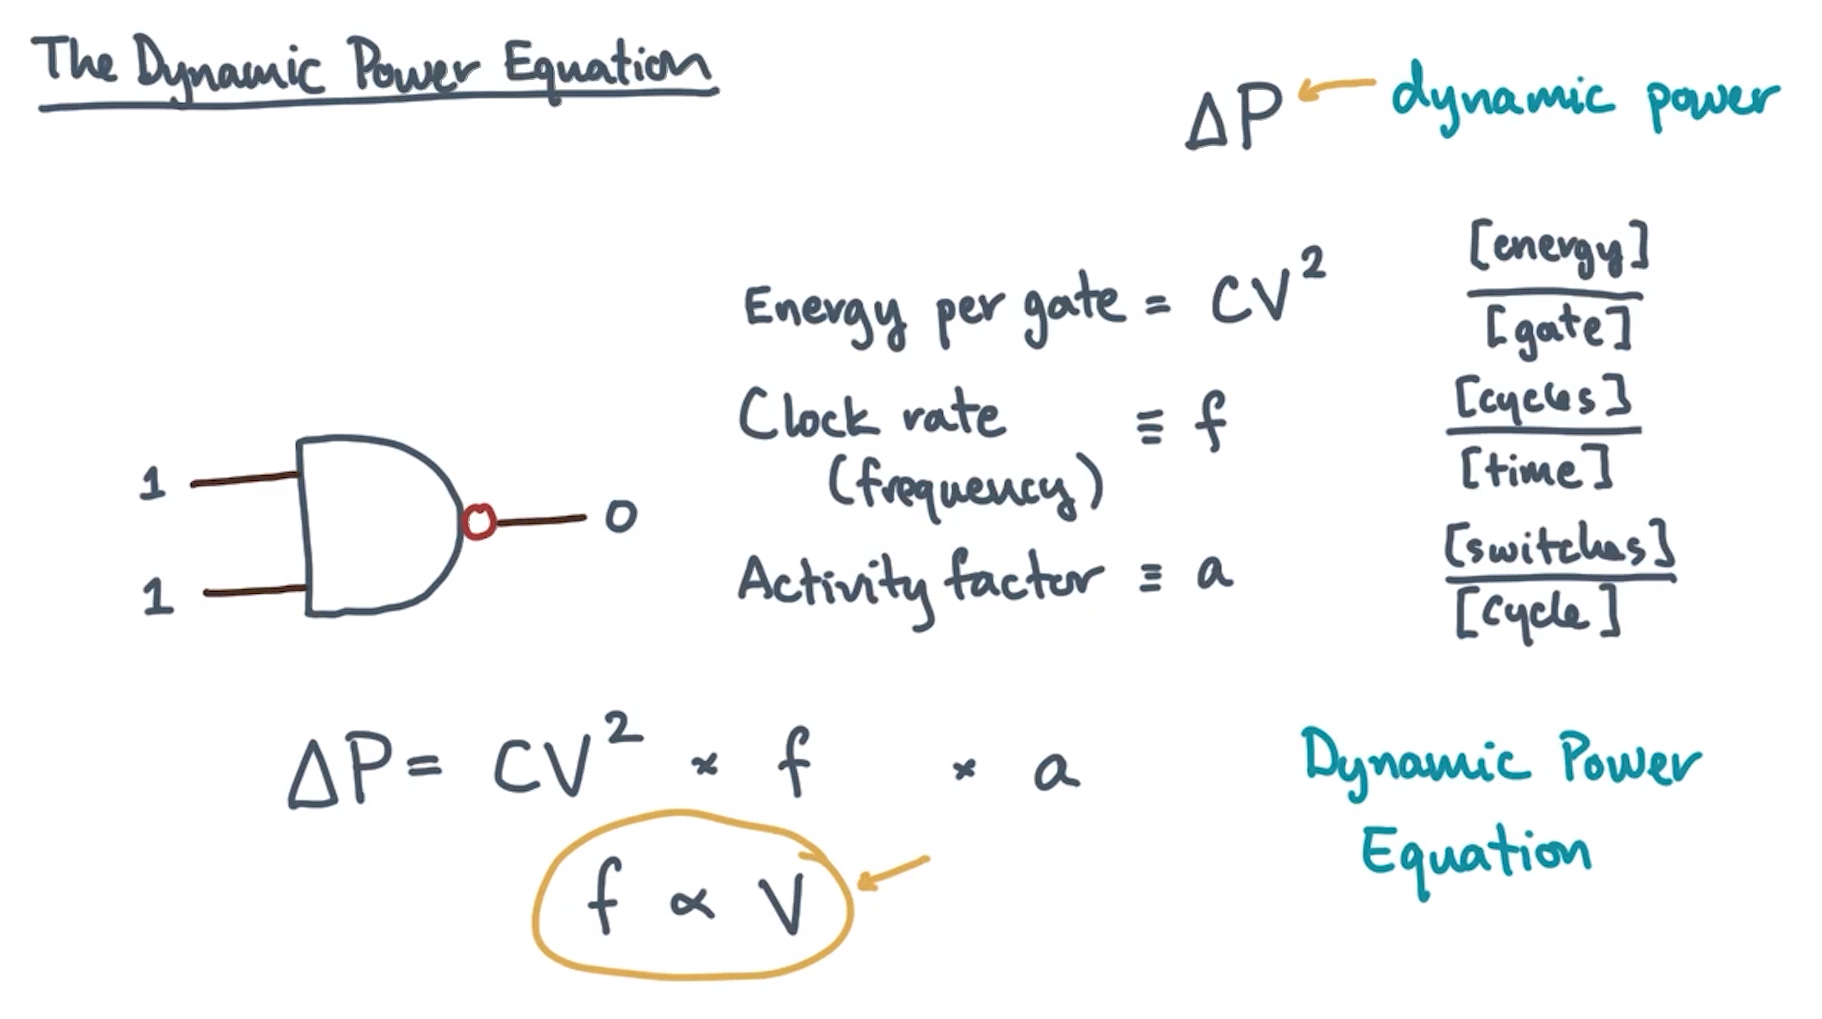 The Dynamic Power Equation
ΔP ← dynamic power
Energy per gate = CV² [energy]
[gate]
Clock rate ≡ f [cycles]
(frequency) [time]
Activity factor ≡ a [switches]
[cycle]
1
1
0
ΔP = CV² × f × a
Dynamic Power
Equation
f ∝ V